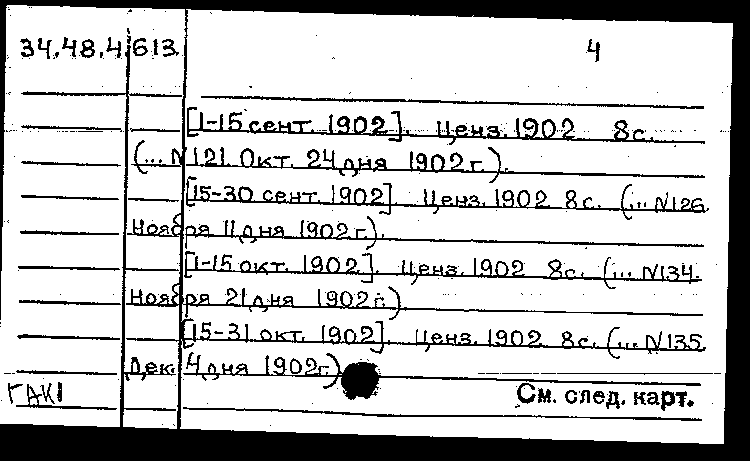 34.48.4.613. 4
[1-15 сент. 1902]. Ценз. 1902 8с.
(... N121. Окт. 24 дня 1902 г.).
[15-30 сент. 1902] Ценз. 1902 8с. (... N126
Ноября 11 дня 1902 г.).
[1-15 окт. 1902]. Ценз. 1902 8с. (... N134.
Ноября 21 дня 1902 г.).
[15-31 окт. 1902]. Ценз. 1902 8с. (... N135
Дек. 4 дня 1902 г.)
ГАК1 См. след. карт.